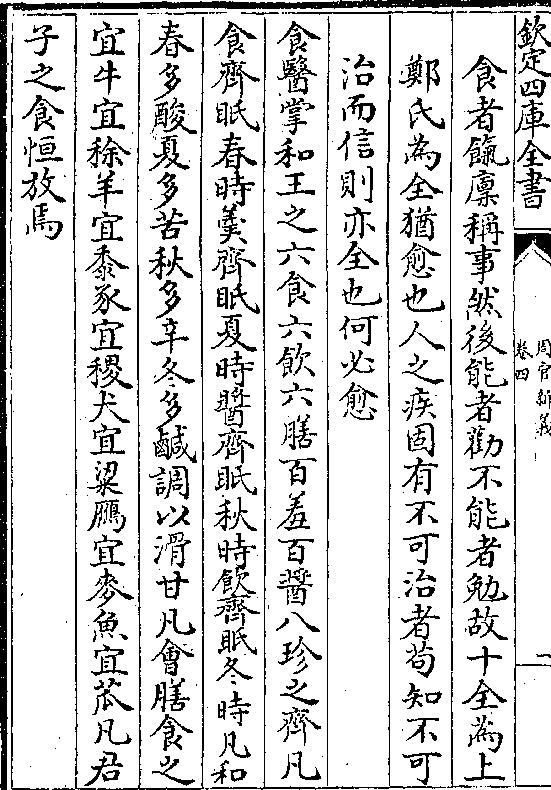 欽定四庫全書
周官新義
卷四
一
食者餼廪稱事然後能者勸不能者勉故十全為上
鄭氏為全猶愈也人之疾固有不可治者苟知不可
治而信則亦全也何必愈
食醫掌和王之六食六飲六膳百羞百醬八珍之齊凡
食齊眡春時羮齊眡夏時醬齊眡秋時飲齊眡冬時凡和
春多酸夏多苦秋多辛冬多鹹調以滑甘凡會膳食之
宜牛宜稌羊宜黍豕宜稷犬宜粱鴈宜麥魚宜苽凡君
子之食恒放焉